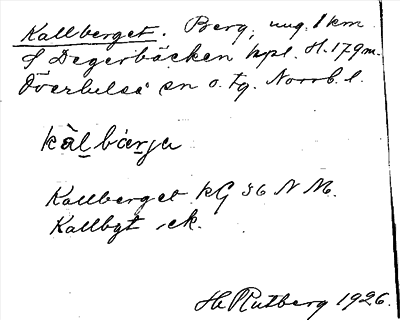 Kallberget. Berg, ung. 1 km.
S Degerbäcken hpl. H. 179 m.
Överluleå sn o. tg. Norrb. l.
kàl bárja
Kallberget kG 36 N M.
Kallbgt ek.
H. Rutberg 1926.